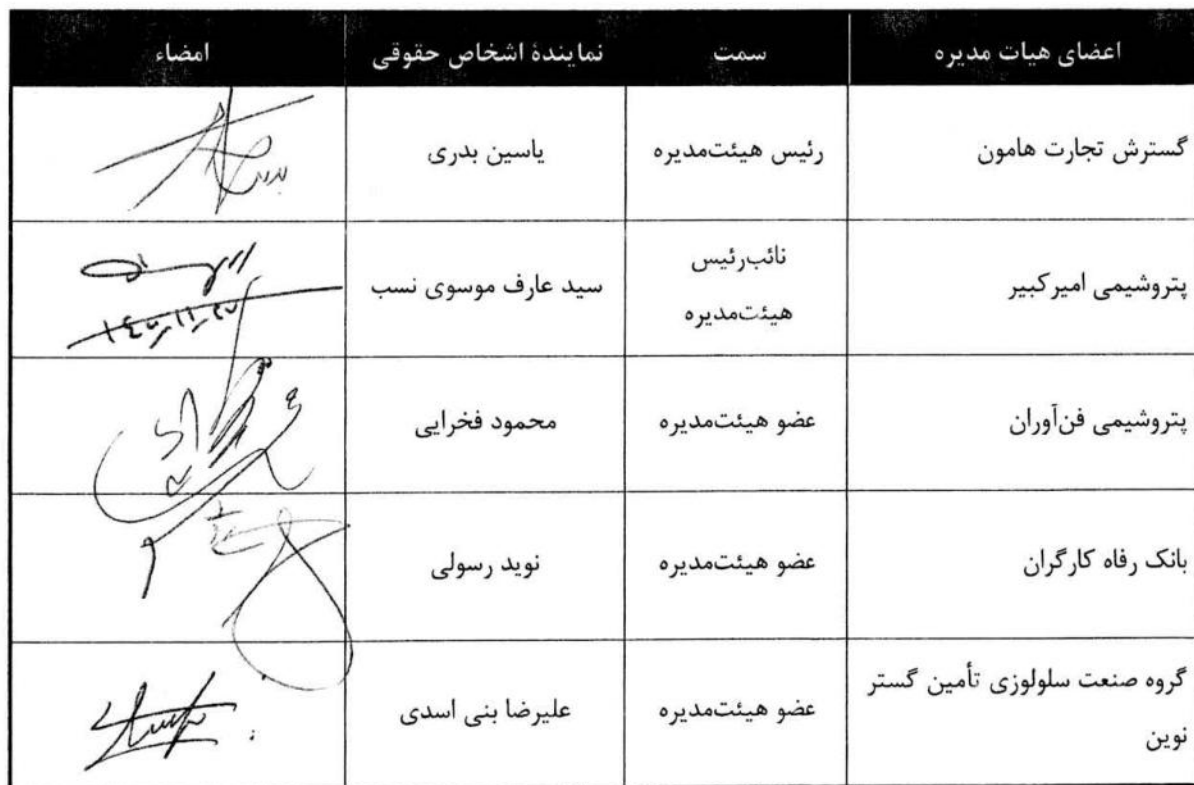 اعضای هیات مدیره سمت نمایندهٔ اشخاص حقوقی امضاء
گسترش تجارت هامون رئیس هیئت‌مدیره یاسین بدری
پتروشیمی امیرکبیر نائب‌رئیس
هیئت‌مدیره سید عارف موسوی نسب
پتروشیمی فن‌آوران عضو هیئت‌مدیره محمود فخرایی
بانک رفاه کارگران عضو هیئت‌مدیره نوید رسولی
گروه صنعت سلولوزی تأمین گستر
نوین عضو هیئت‌مدیره علیرضا بنی اسدی